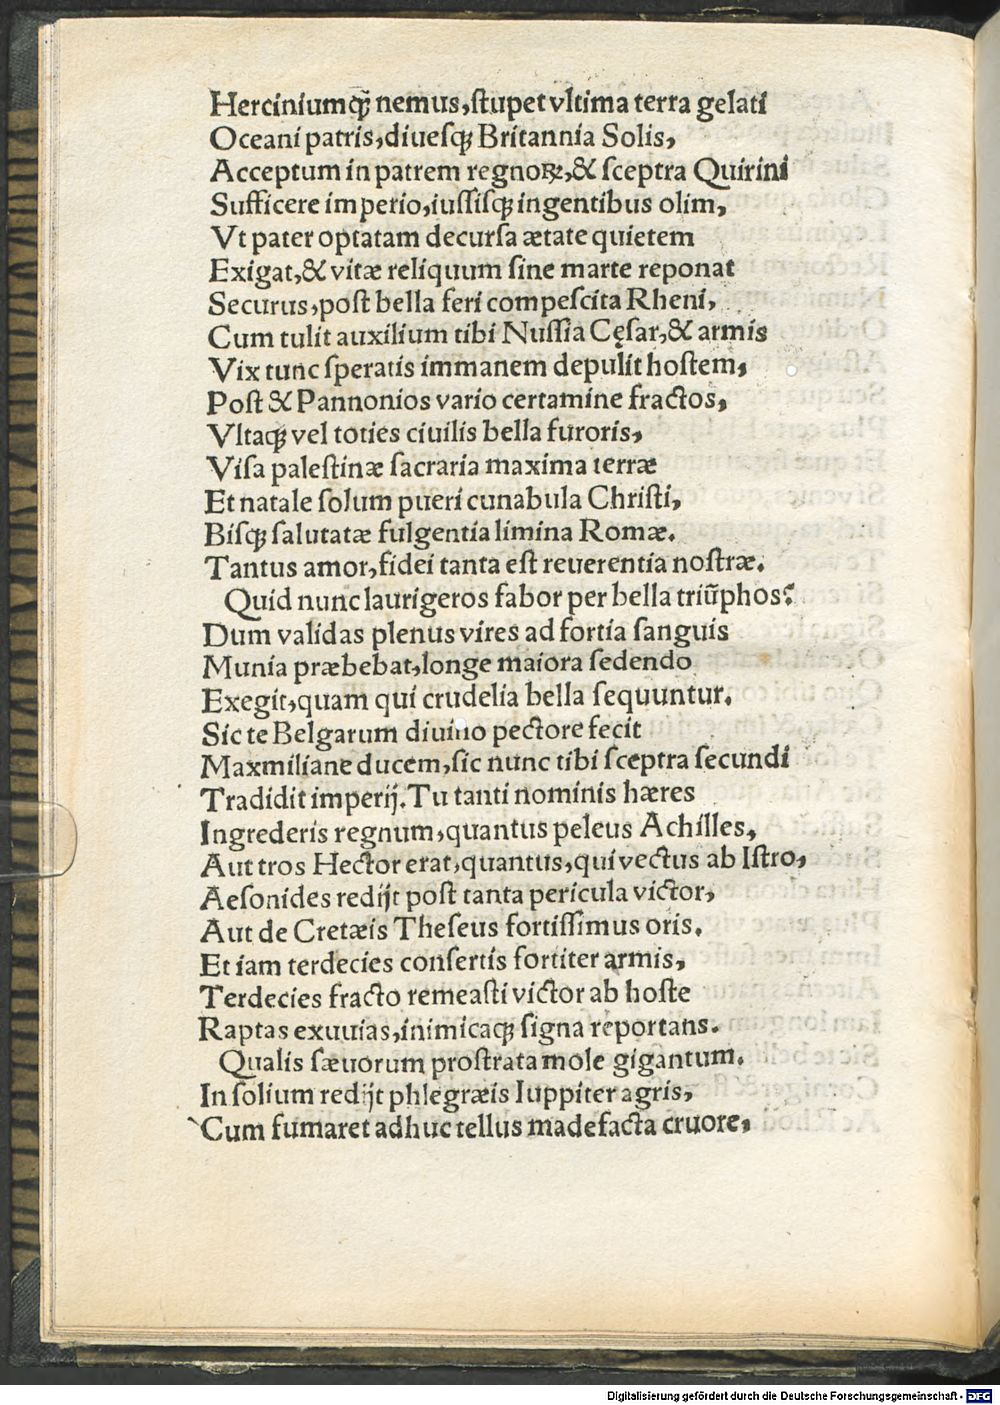 Herciniumqꝫ nemus,ſtupet vltima terra gelati
Oceani patris,diueſqꝫ Britannia Solis,
Acceptum in patrem regnoꝝ,& ſceptra Quirini
Sufficere imperio,iuſſiſqꝫ ingentibus olim,
Vt pater optatam decurſa ætate quietem
Exigat,& vitæ reliquum ſine marte reponat
Securus,poſt bella feri compeſcita Rheni,
Cum tulit auxilium tibi Nuſſia Cęſar,& armis
Vix tunc ſperatis immanem depulit hoſtem,
Poſt & Pannonios vario certamine fractos,
Vltaqꝫ vel toties ciuilis bella furoris,
Viſa paleſtinæ ſacraria maxima terræ
Et natale ſolum pueri cunabula Chriſti,
Biſqꝫ ſalutatæ fulgentia limina Romæ.
Tantus amor,fidei tanta eſt reuerentia noſtræ.
Quid nunc laurigeros fabor per bella triūphos?
Dum validas plenus vires ad fortia ſanguis
Munia præbebat,longe maiora ſedendo
Exegit,quam qui crudelia bella ſequuntur.
Sic te Belgarum diuino pectore fecit
Maxmiliane ducem,ſic nunc tibi ſceptra ſecundi
Tradidit imperij.Tu tanti nominis hæres
Ingrederis regnum,quantus peleus Achilles,
Aut tros Hector erat,quantus,qui vectus ab Iſtro,
Aeſonides redijt poſt tanta pericula victor,
Aut de Cretæis Theſeus fortiſſimus oris.
Et iam terdecies conſertis fortiter armis,
Terdecies fracto remeaſti victor ab hoſte
Raptas exuuias,inimicaqꝫ ſigna reportans.
Qualis ſæuorum proſtrata mole gigantum.
In ſolium redijt phlegræis Iuppiter agris,
Cum fumaret adhuc tellus madefacta cruore,
Digitalisierung gefördert durch die Deutsche Forschungsgemeinschaft - DFG